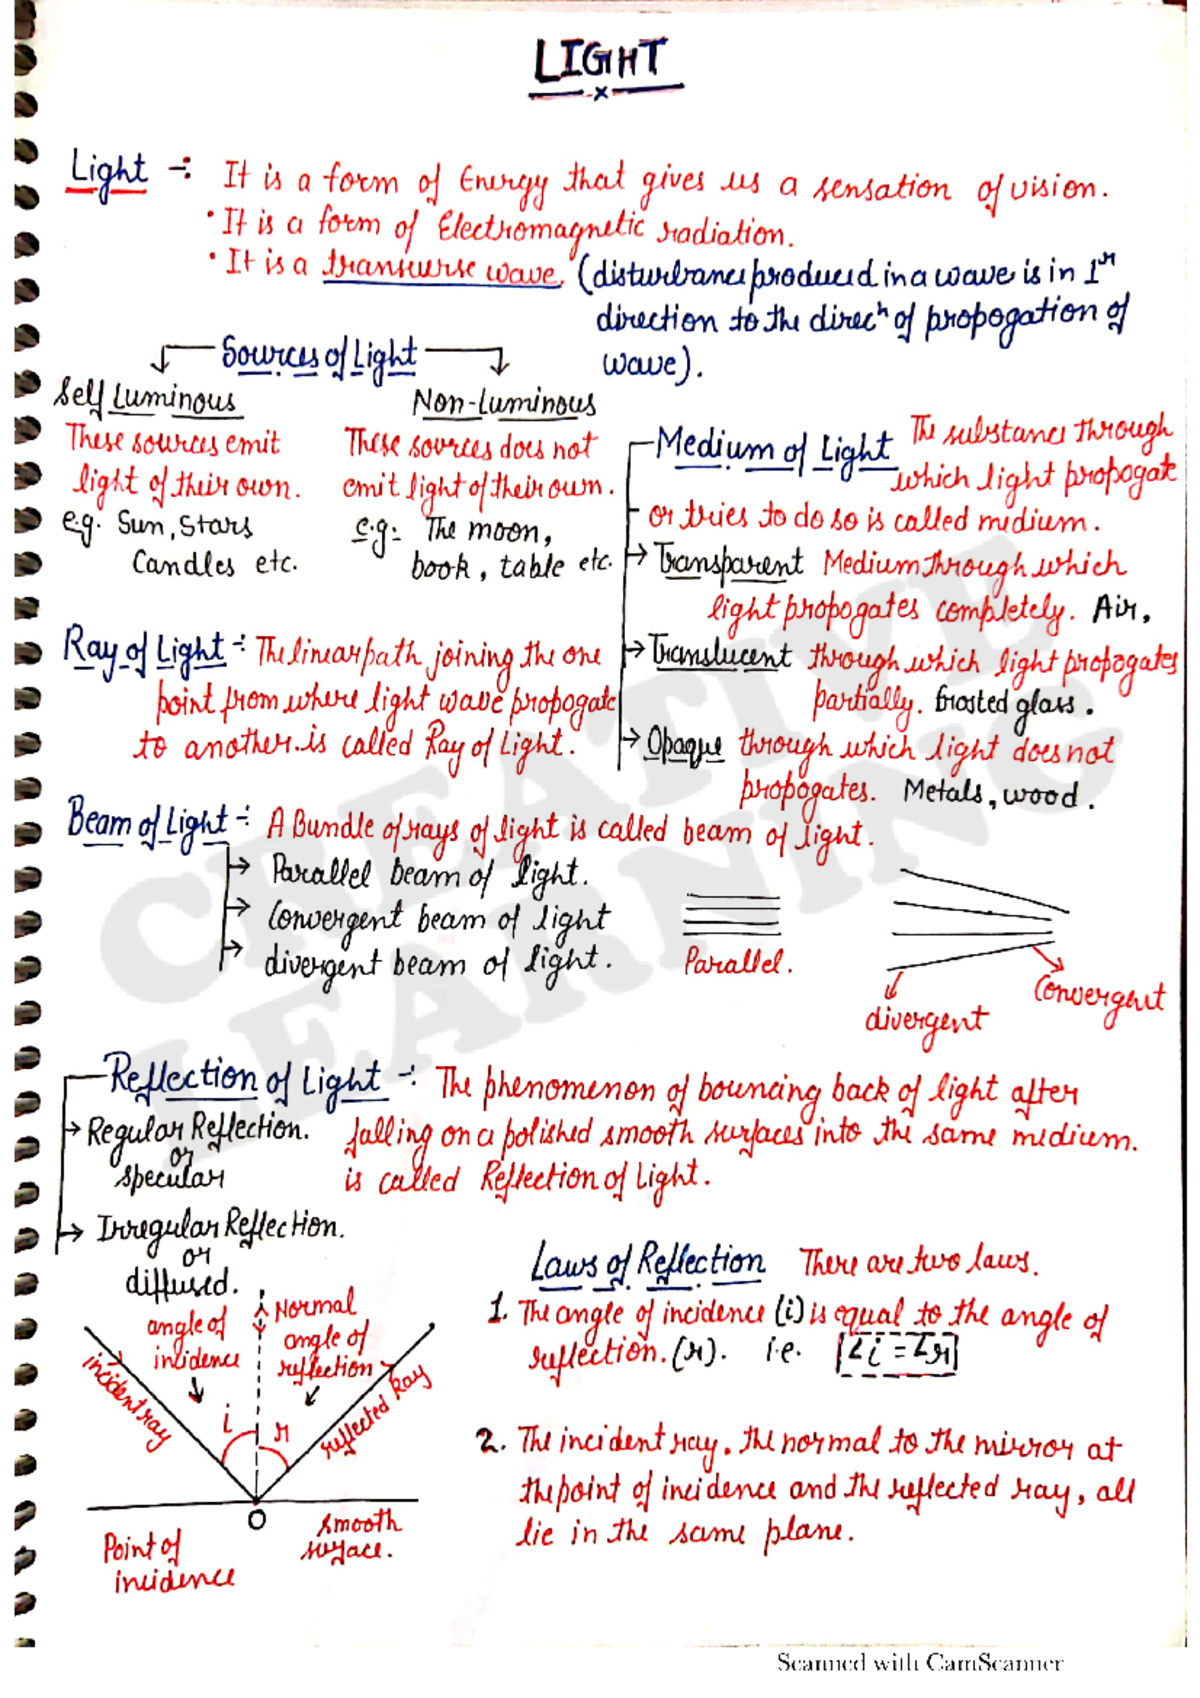 LIGHT
Light -: It is a form of Energy that gives us a sensation of vision.
• It is a form of Electromagnetic radiation.
• It is a transverse wave. (disturbance produced in a wave is in 1r
direction to the direcn of propogation of
wave).
Sources of Light
Self Luminous
These sources emit
light of their own.
e.g. Sun, Stars
Candles etc.
Non-Luminous
These sources does not
emit light of their own.
e.g:- The moon,
book, table etc.
Medium of Light The substance through
which light propogate
or tries to do so is called medium.
→ Transparent Medium through which
light propogates completely. Air,
→ Translucent through which light propogates
partially. frosted glass.
→ Opaque through which light does not
propogates. Metals, wood.
Ray of Light -: The linear path joining the one
point from where light wave propogate
to another is called Ray of Light.
Beam of Light -: A Bundle of rays of light is called beam of light.
→ Parallel beam of light.
→ Convergent beam of light
→ divergent beam of light.
Parallel.
divergent
Convergent
Reflection of Light -: The phenomenon of bouncing back of light after
falling on a polished smooth surfaces into the same medium.
is called Reflection of Light.
→ Regular Reflection.
or
specular
→ Irregular Reflection.
or
diffused.
Laws of Reflection There are two laws.
1. The angle of incidence (i) is equal to the angle of
reflection. (r). i.e. ∠i = ∠r
2. The incident ray, the normal to the mirror at
the point of incidence and the reflected ray, all
lie in the same plane.
angle of
incidence
Normal
angle of
reflection
incident ray
reflected Ray
i
r
O
Point of
incidence
smooth
surface.
CREATIVE
LEARNING
Scanned with CamScanner